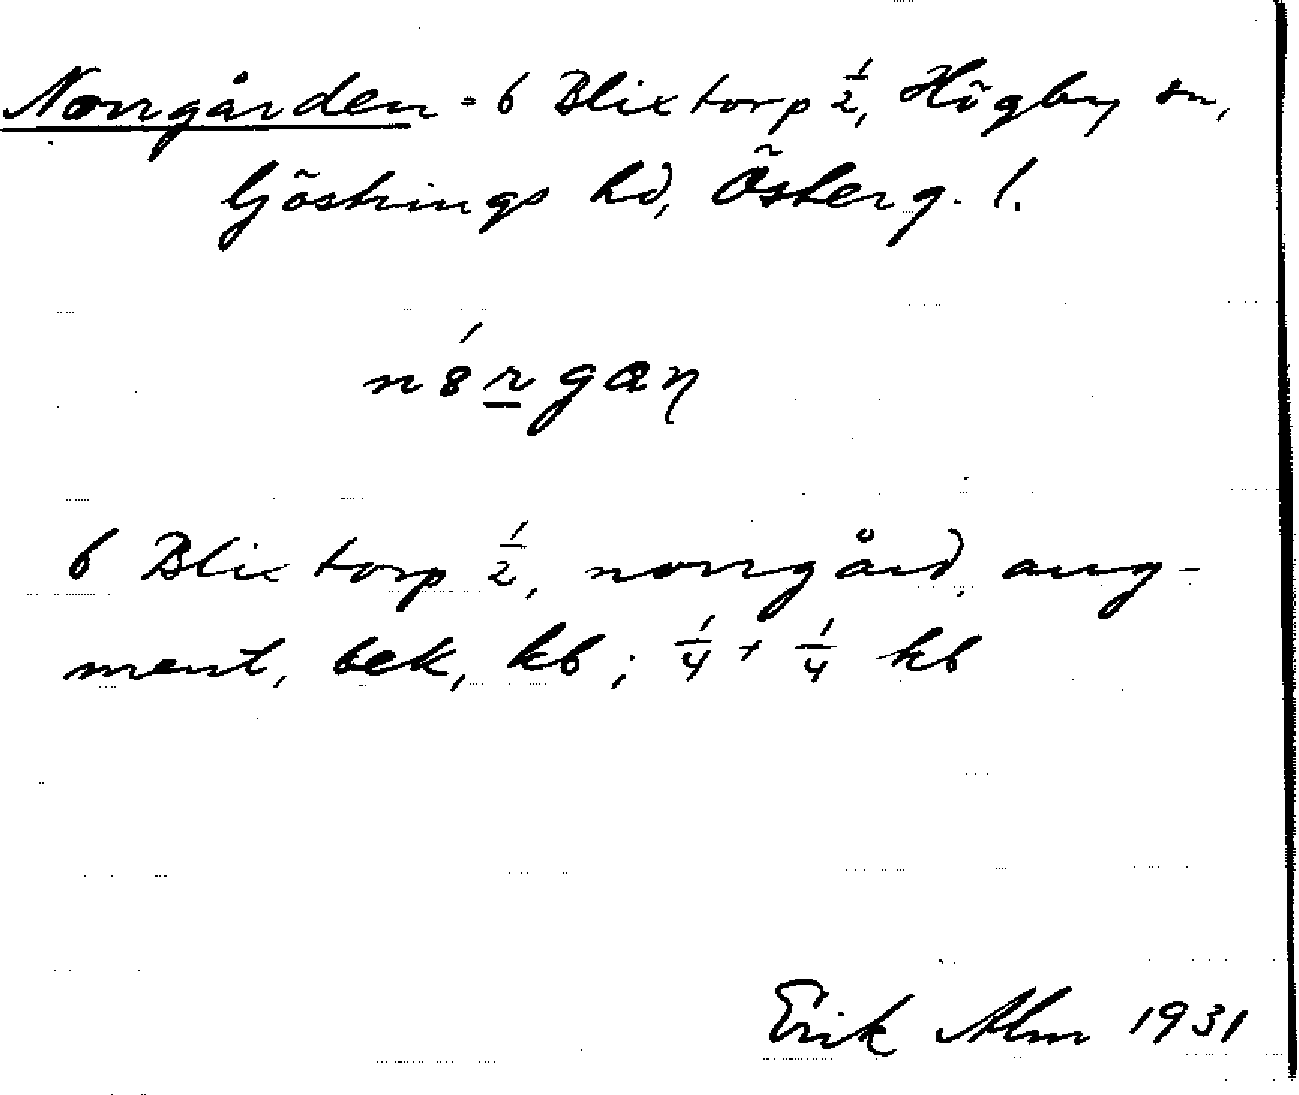 Norrgården - 6 Blixtorp ½, Högby sn,
Göstrings hd, Österg. l.
nǿr̲gaꞃ
6 Blixtorp ½, norrgård, aug-
ment, bek, kb; ¼ + ¼ kb
Erik Alm 1931